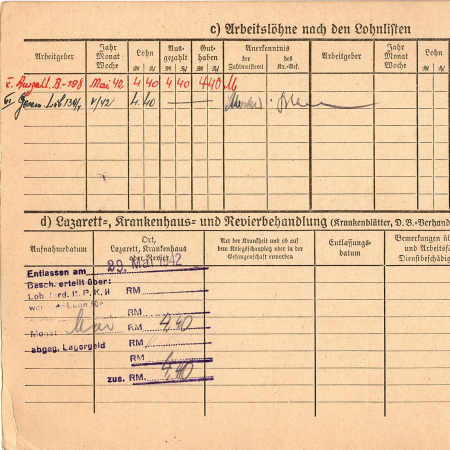 c) Arbeitslöhne nach den Lohnlisten
Arbeitgeber
Jahr
Monat
Woche
Lohn
Aus-
gezahlt
Gut-
haben
Anerkenntnis
der
Zahlmeisterei
des
Kr.-Gef.
Arbeitgeber
Jahr
Monat
Woche
Lohn
Mai 42 4 40 4 40 4 40
V/42 4 40
d) Lazarett-, Krankenhaus- und Revierbehandlung (Krankenblätter, D. B.-Verhand
Aufnahmedatum
Ort,
Lazarett, Krankenhaus
oder Revier
Art der Krankheit und ob auf
dem Kriegsschauplatz oder in der
Gefangenschaft erworben
Entlassungs-
datum
Bemerkungen üb
und Arbeitsf
Dienstbeschädig
29. Mai 1942
Entlassen am
Besch. erteilt über:
RM
RM
Monat Mai RM 4,40
abgeg. Lagergeld
RM
zus. RM. 4,40